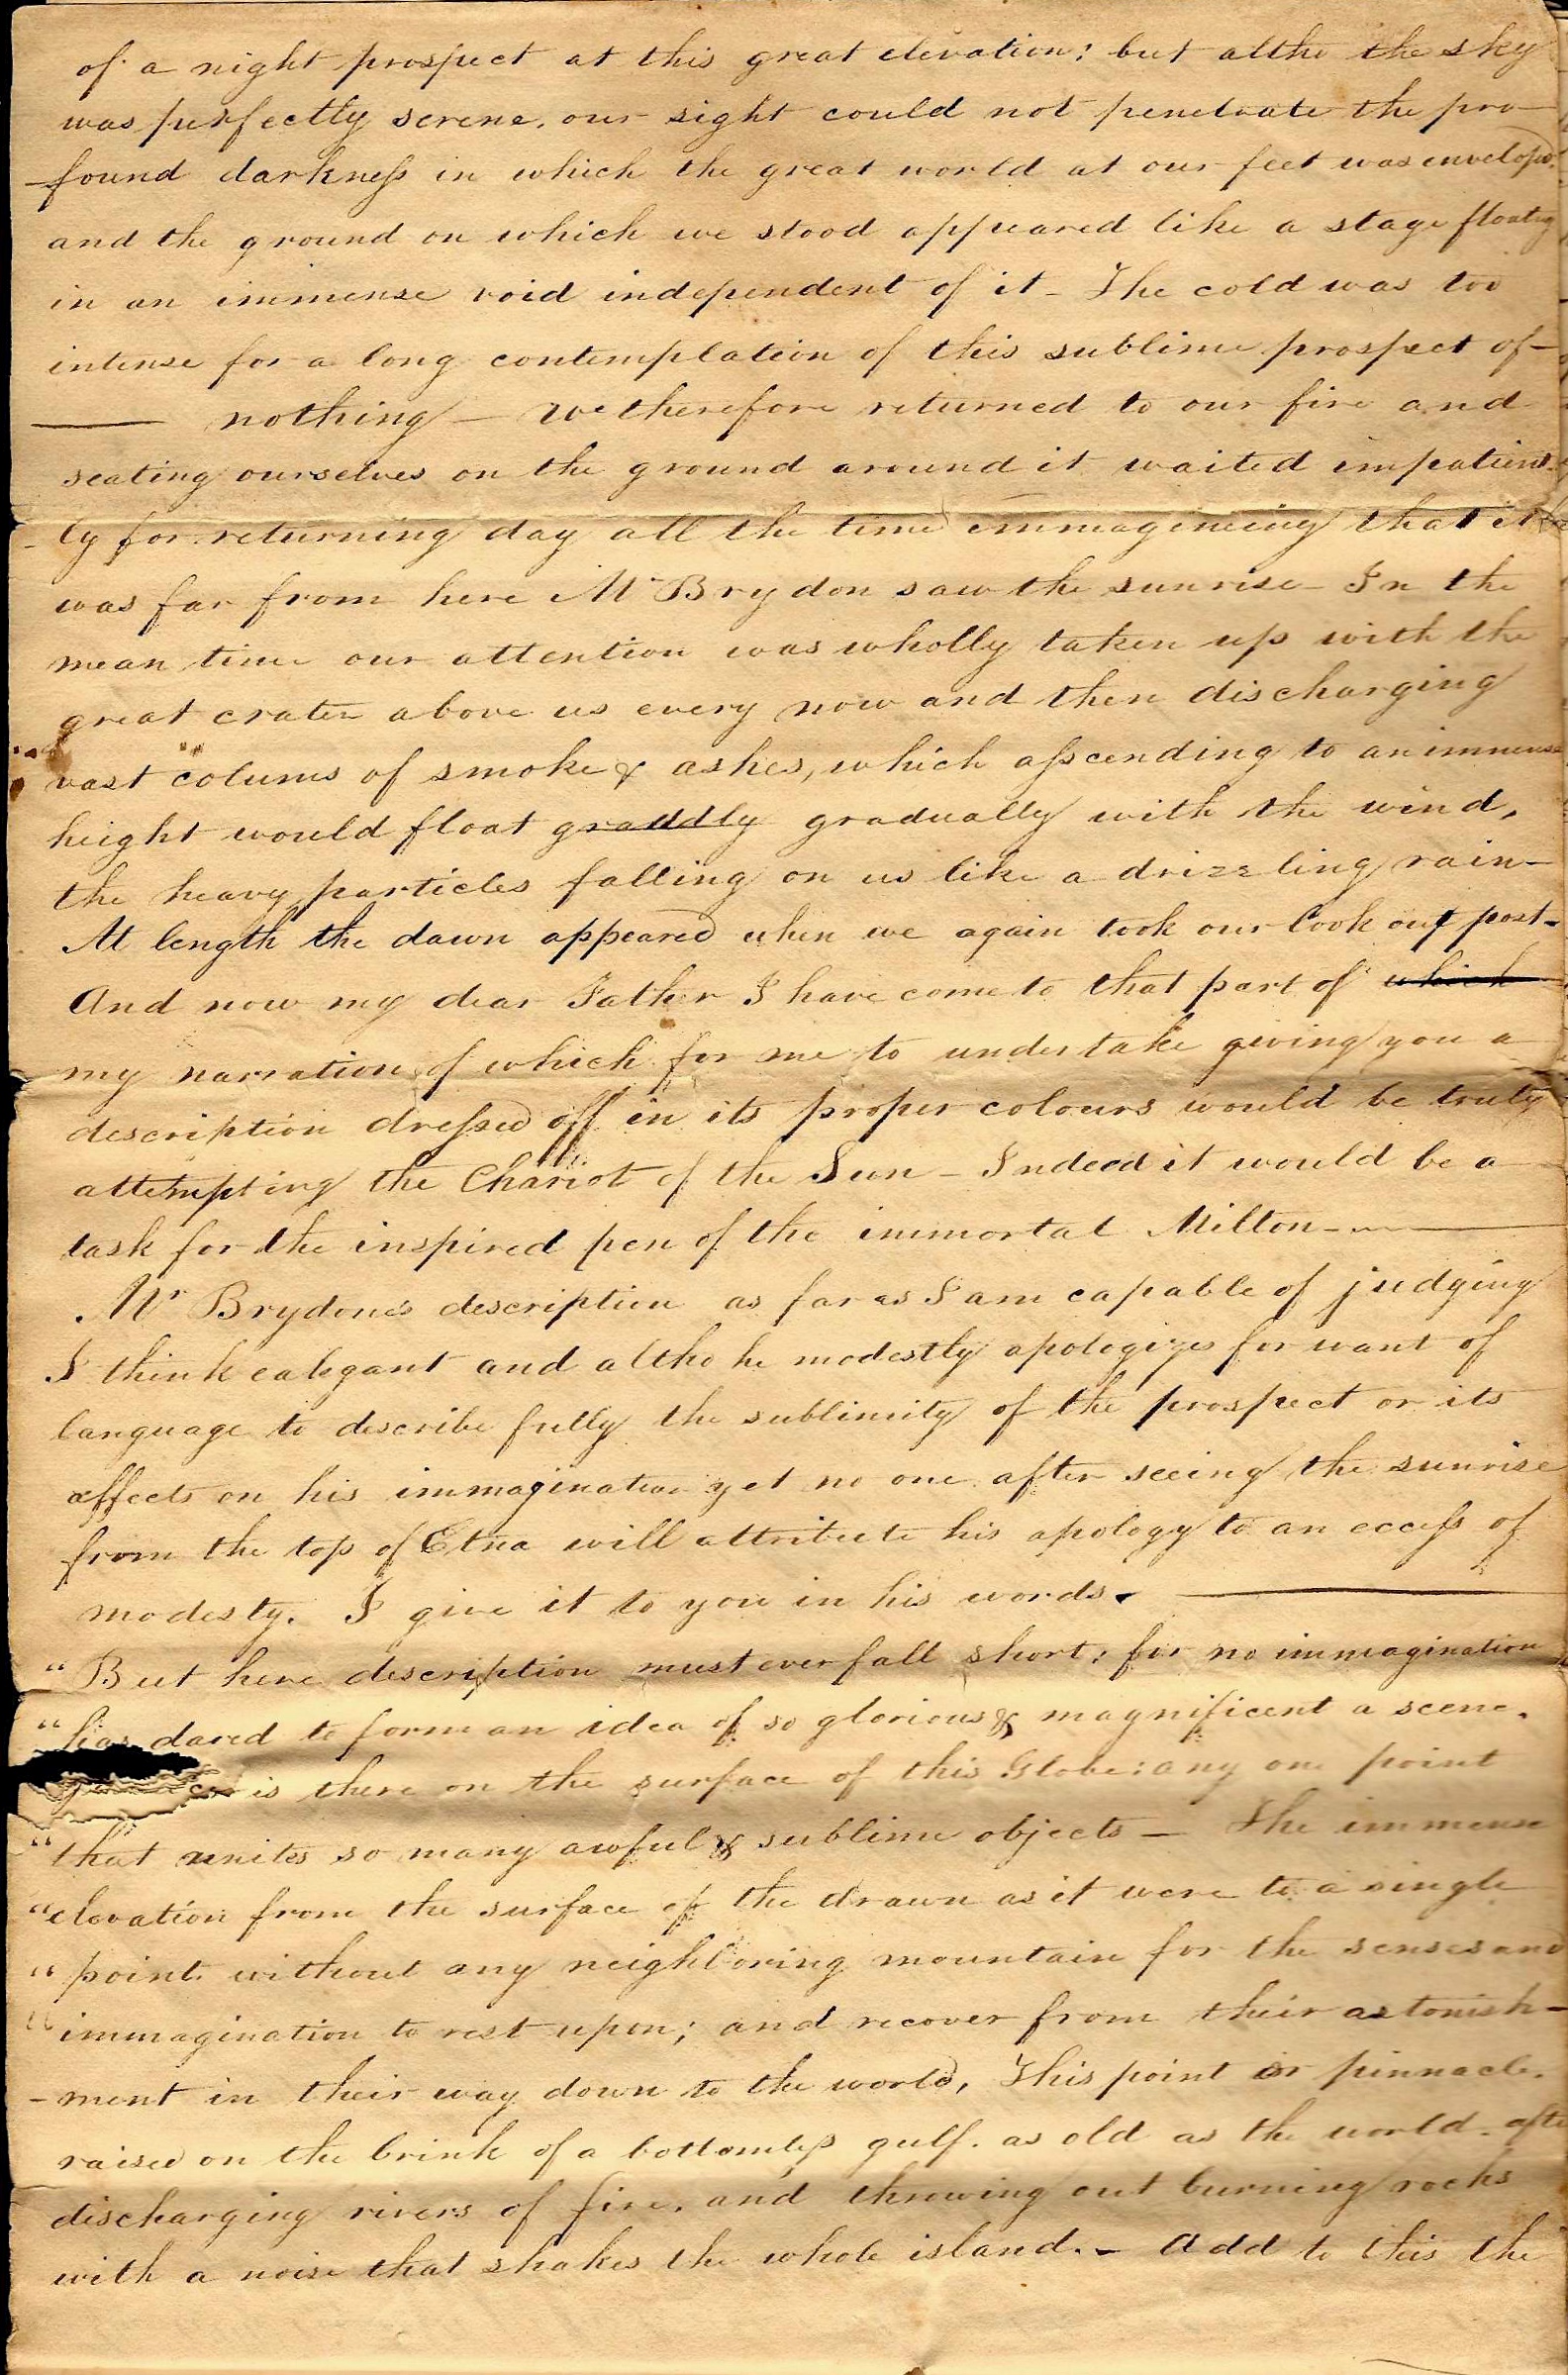 of a night prospect at this great elevation: but altho the sky
was perfectly serene, our sight could not penetrate the pro-
-found darkness in which the great world at our feet was envelop'd
and the ground on which we stood appeared like a stage floating
in an immense void independent of it - The cold was too
intense for a long contemplation of this sublime prospect of -
—— nothing - We therefore returned to our fire and
seating ourselves on the ground around it waited impatient-
-ly for returning day all the time immagineing that it
was far from here Mr Brydon saw the sunrise - In the
mean time our attention was wholly taken up with the
great crater above us every now and then discharging
vast colums of smoke & ashes, which asscending to an immense
height would float graddly gradually with the wind,
the heavy particles falling on us like a drizzling rain -
At length the dawn appeared when we again took our look out post -
And now my dear Father I have come to that part of which
my narration of which for me to undertake giving you a
description dressed off in its proper colours would be truly
attempting the Chariot of the Sun - Indeed it would be a
task for the inspired pen of the immortal Milton - ——
Mr Brydone's description as far as I am capable of judging
I think ealegant and altho he modestly apologizes for want of
language to describe fully the sublimity of the prospect or its
effects on his immagination yet no one after seeing the sunrise
from the top of Etna will attribute his apology to an eccess of
modesty. I give it to you in his words. ——
"But here description must ever fall short; for no immagination
"has dared to form an idea of so glorious & magnificent a scene.
is there on the surface of this Globe: any one point
"that unites so many awful & sublime objects - The immense
"elevation from the surface of the drawn as it were to a single
"point. without any neighboring mountain for the senses and
"immagination to rest upon; and recover from their astonish-
-ment in their way down to the world. This point or pinnacle.
raised on the brink of a bottomless gulf. as old as the world. often
discharging rivers of fire. and throwing out burning rocks
with a noise that shakes the whole island. - Add to this the